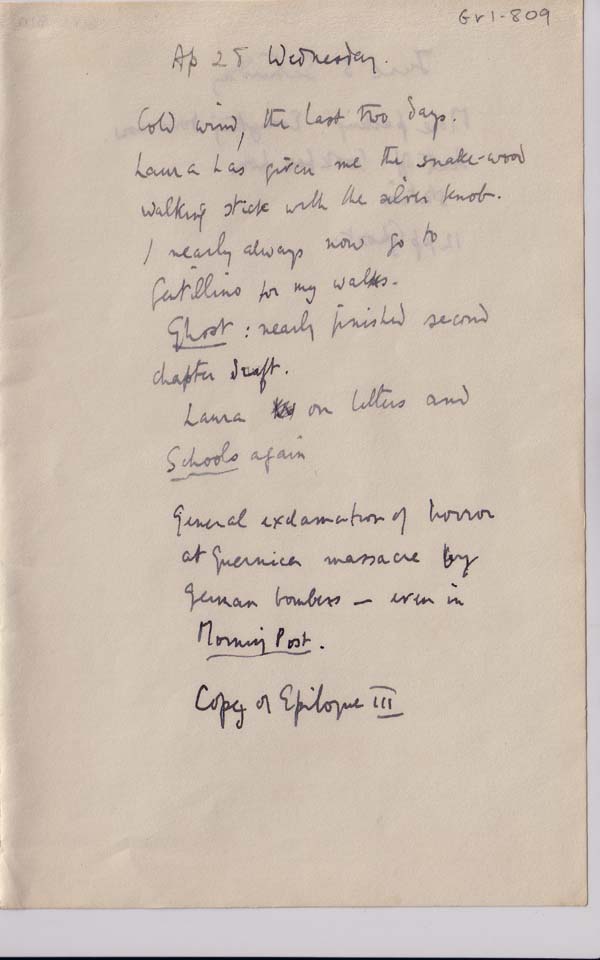 Gr1-809
Ap 28 Wednesday.
Cold wind, the last two days.
Laura has given me the snake-wood
walking stick with the silver knob.
I nearly always now go to
Gentillino for my walks.
Ghost : nearly finished second
chapter draft.
Laura on letters and
Schools again
General exclamation of horror
at Guernica massacre by
German bombers — even in
Morning Post.
Copy of Epilogue III